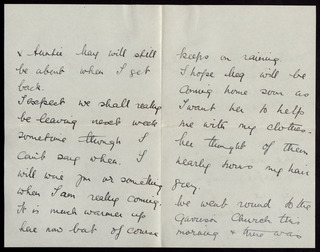 & Auntie May will still
be about when I get
back.
I expect we shall really
be leaving next week
sometime though I
can't say when. I
will wire you or something
when I am really coming.
It is much warmer up
here now but of course
keeps on raining.
I hope Meg will be
coming home soon as
I want her to help
me with my clothes.
her thought of them
nearly turns my hair
grey.
We went round to the
Garrison Church this
morning & there was